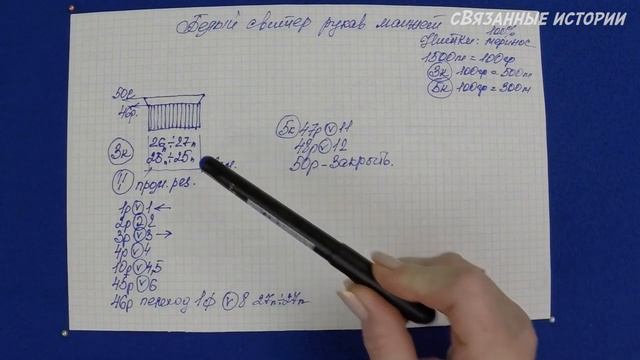 СВЯЗАННЫЕ ИСТОРИИ
Белый свитер рукав манжет
Нитки: 100% меринос
1500м = 100гр
3к 100гр = 500м
5к 100гр = 300м
50р.
46р.
3к
26п÷27п
25п÷25п
пром. рез.
1р v 1 ←
2р 2 2
3р v 3 →
4р v 4
10р v 4,5
45р v 6
46р переход 1ф v 8 27п÷27п
5к 47р v 11
48р v 12
50р - Закрыть.